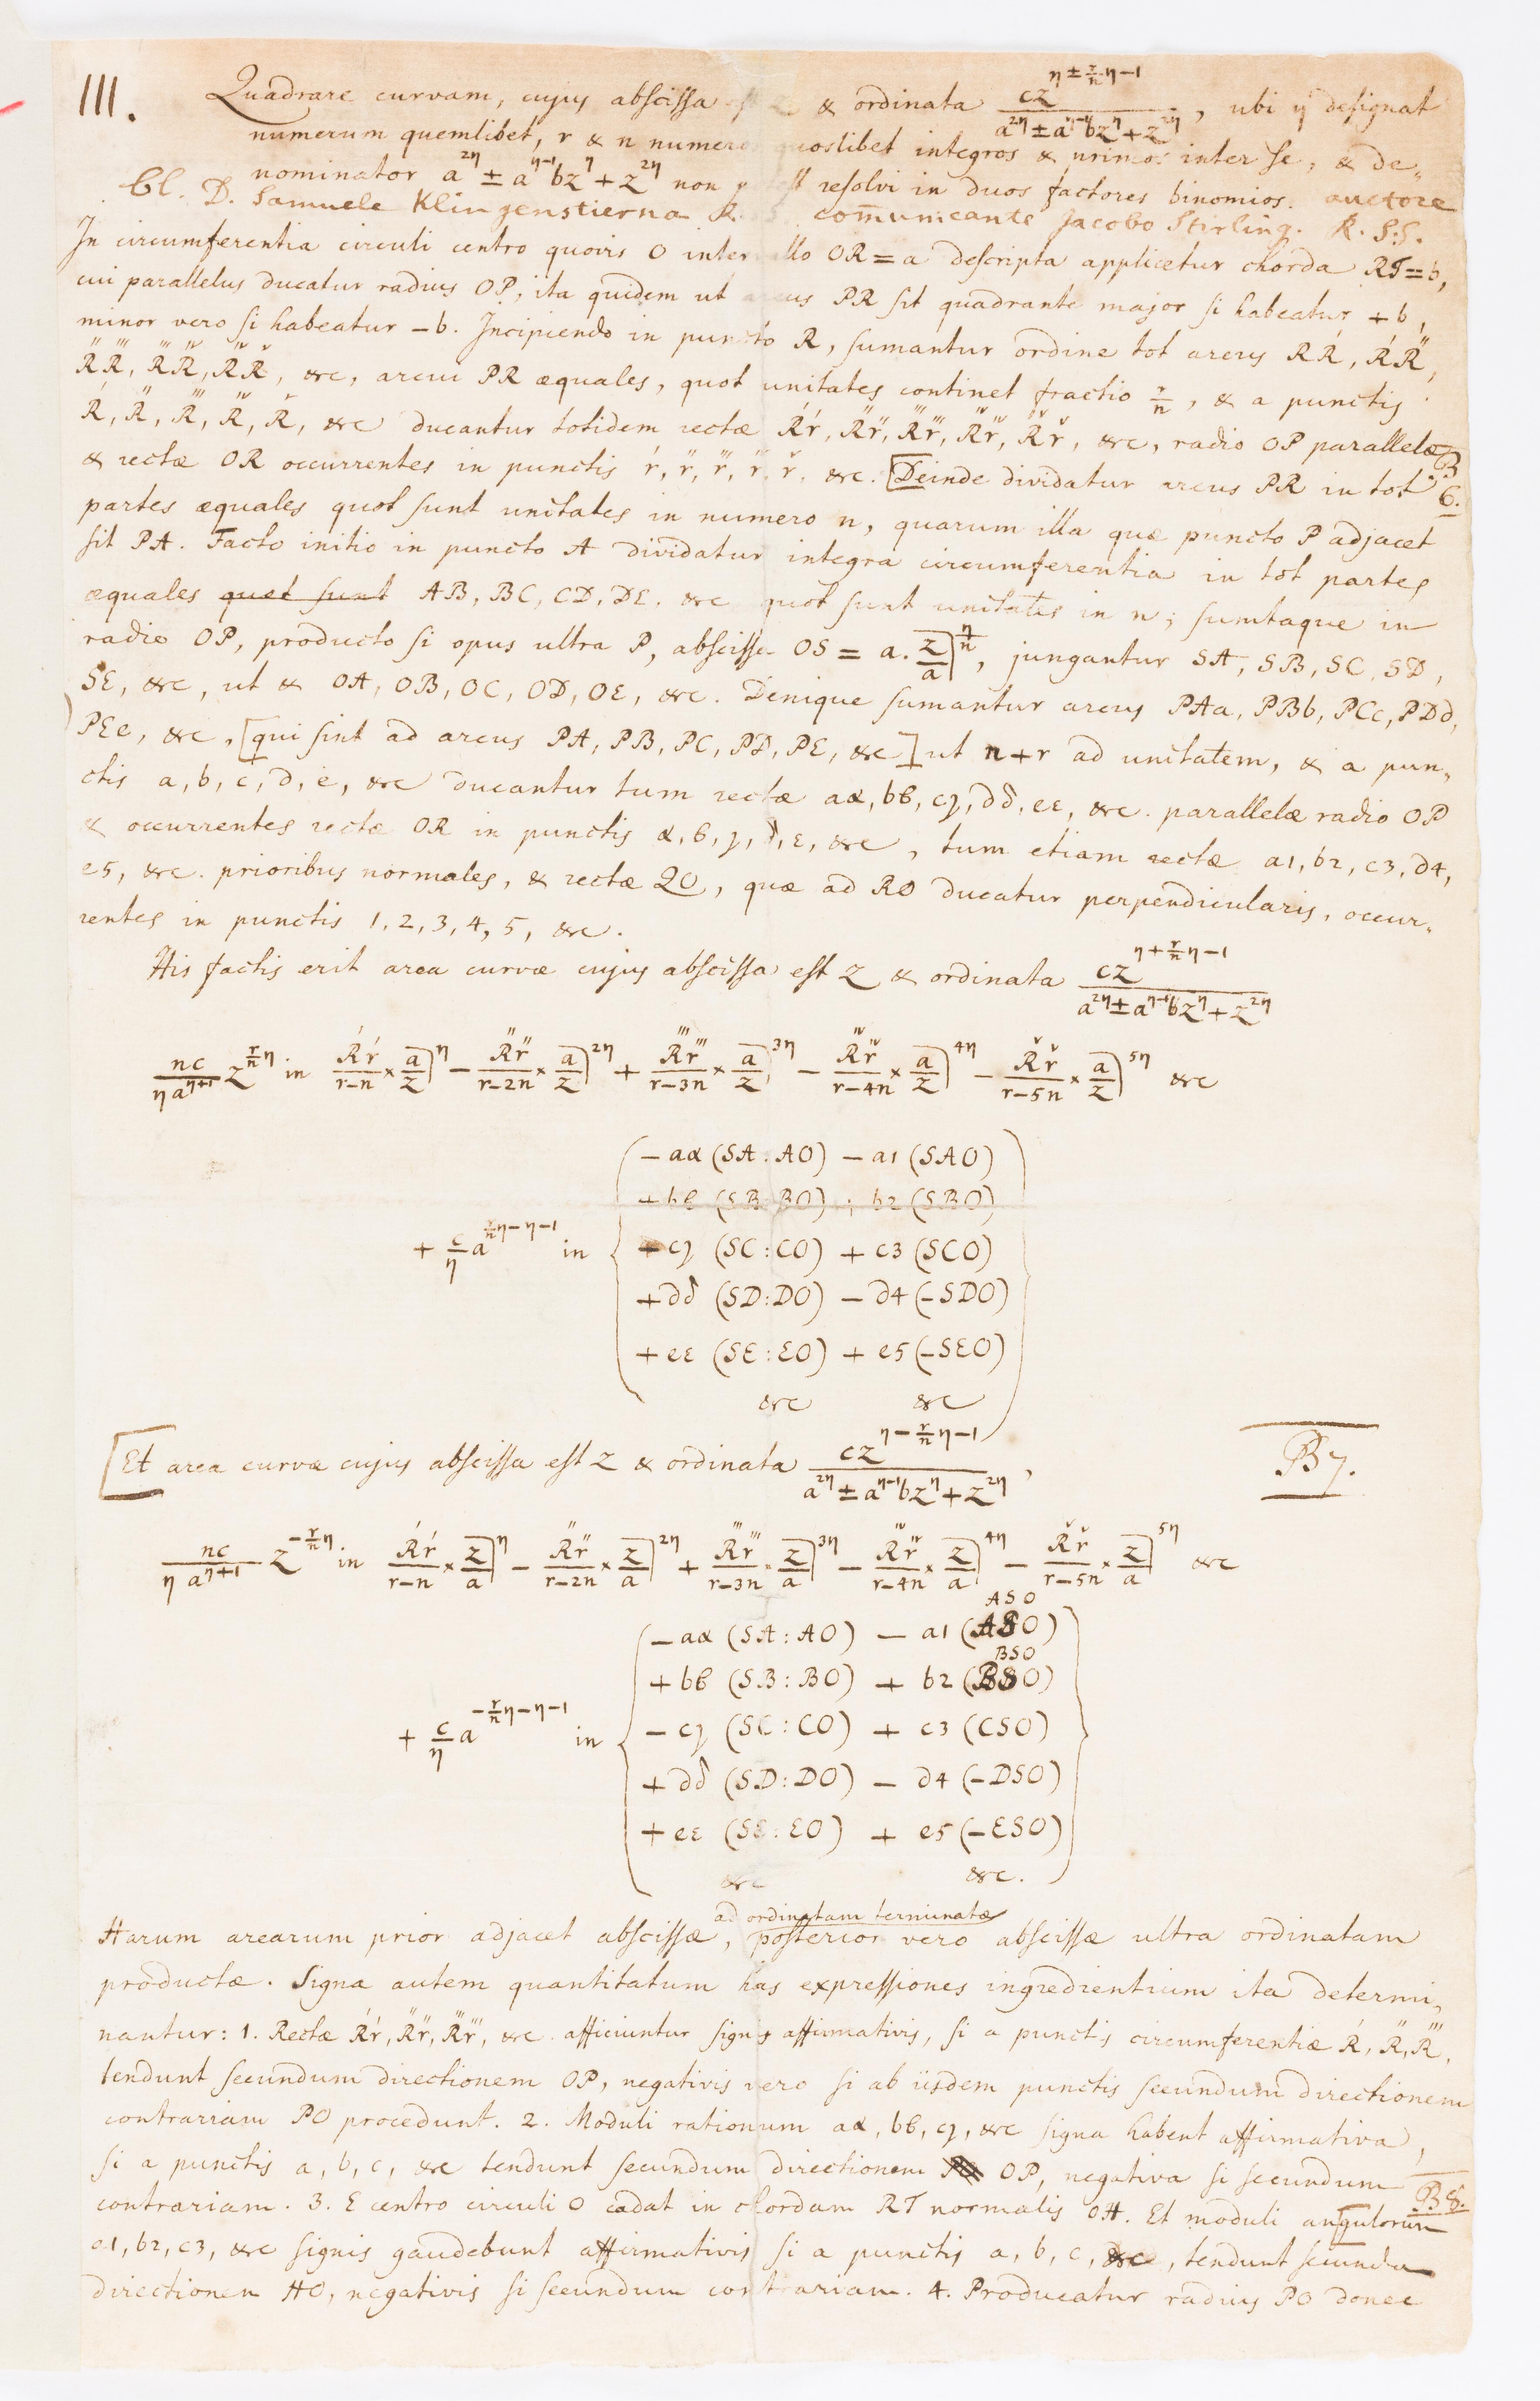 III. Quadrare curvam, cujus abscissa est z & ordinata cz^{η±\frac{r}{n}η−1} / a^{2η}±a^{η−1}bz^η+z^{2η}, ubi η designat
numerum quemlibet, r & n numeros quoslibet integros & primos inter se, & de„
nominator a^{2η} ± a^{η−1}bz^η + z^{2η} non potest resolvi in duos factores binomios. auctore
Cl. D. Samuele Klingenstierna R. S. communicante Jacobo Stirling. R. S. S.
In circumferentia circuli centro quovis O intervallo OR = a descripta applicetur chorda RT = b,
cui parallelus ducatur radius OP, ita quidem ut arcus PR sit quadrante major si habeatur + b,
minor vero si habeatur − b. Incipiendo in puncto R, sumantur ordine tot arcus RŔ, ŔR̋,
R''R''', R'''R'''', R''''Rᵛ, &c, arcui PR æquales, quot unitates continet fractio r/n, & a punctis
R', R'', R''', R'''', Rᵛ, &c ducantur totidem rectæ R'r', R''r'', R'''r''', R''''r'''', Rᵛrᵛ, &c, radio OP parallelæ
& rectæ OR occurrentes in punctis r', r'', r''', r'''', rᵛ, &c. [Deinde dividatur arcus PR in tot
B
6.
partes æquales quot sunt unitates in numero n, quarum illa quæ puncto P adjacet
sit PA. Facto initio in puncto A dividatur integra circumferentia in tot partes
æquales quot sunt AB, BC, CD, DE, &c quot sunt unitates in n; sumtaque in
radio OP, producto si opus ultra P, abscissa OS = a. z/a|^{η/n}, jungantur SA, SB, SC, SD,
SE, &c, ut & OA, OB, OC, OD, OE, &c. Denique sumantur arcus PAa, PBb, PCc, PDd,
PEe, &c, [qui sint ad arcus PA, PB, PC, PD, PE, &c] ut n+r ad unitatem, & a pun„
ctis a, b, c, d, e, &c ducantur tum rectæ aα, bβ, cγ, dδ, eε, &c. parallelæ radio OP
& occurrentes rectæ OR in punctis α, β, γ, δ, ε, &c, tum etiam rectæ a1, b2, c3, d4,
e5, &c. prioribus normales, & rectæ QO, quæ ad RO ducatur perpendicularis, occur„
rentes in punctis 1, 2, 3, 4, 5, &c.
His factis erit area curvæ cujus abscissa est z & ordinata cz^{η+\frac{r}{n}η−1} / a^{2η}±a^{η−1}bz^η+z^{2η}
nc/ηa^{η+1} z^{\frac{r}{n}η} in R'r'/r−n × a/z|^η − R''r''/r−2n × a/z|^{2η} + R'''r'''/r−3n × a/z|^{3η} − R''''r''''/r−4n × a/z|^{4η} − Rᵛrᵛ/r−5n × a/z|^{5η} &c
− aα (SA : AO) − a1 (SAO)
+ bβ (SB : BO) + b2 (SBO)
+ c/η a^{\frac{r}{n}η−η−1} in − cγ (SC : CO) + c3 (SCO)
+ dδ (SD : DO) − d4 (−SDO)
+ eε (SE : EO) + e5 (−SEO)
&c &c
[Et area curvæ cujus abscissa est z & ordinata cz^{η−\frac{r}{n}η−1} / a^{2η}±a^{η−1}bz^η+z^{2η},
B7.
nc/ηa^{η+1} z^{−\frac{r}{n}η} in R'r'/r−n × z/a|^η − R''r''/r−2n × z/a|^{2η} + R'''r'''/r−3n × z/a|^{3η} − R''''r''''/r−4n × z/a|^{4η} − Rᵛrᵛ/r−5n × z/a|^{5η} &c
ASO
− aα (SA : AO) − a1 (ASO)
BSO
+ bβ (SB : BO) + b2 (BSO)
+ c/η a^{−\frac{r}{n}η−η−1} in − cγ (SC : CO) + c3 (CSO)
+ dδ (SD : DO) − d4 (−DSO)
+ eε (SE : EO) + e5 (−ESO)
&c &c.
ad ordinatam terminatæ
Harum arearum prior adjacet abscissæ, posterior vero abscissæ ultra ordinatam
productæ. Signa autem quantitatum has expressiones ingredientium ita determi„
nantur: 1. Rectæ R'r', R''r'', R'''r''', &c. afficiuntur signis affirmativis, si a punctis circumferentiæ R', R'', R''',
tendunt secundum directionem OP, negativis vero si ab iisdem punctis secundum directionem
contrariam PO procedunt. 2. Moduli rationum aα, bβ, cγ, &c signa habent affirmativa,
si a punctis a, b, c, &c tendunt secundum directionem OP, negativa si secundum
contrariam. 3. E centro circuli O cadat in chordam RT normalis OH. Et moduli an[gulorum
B8.
a1, b2, c3, &c signis gaudebunt affirmativis si a punctis a, b, c, &c, tendunt secundum
directionem HO, negativis si secundum contrariam. 4. Producatur radius PO donec